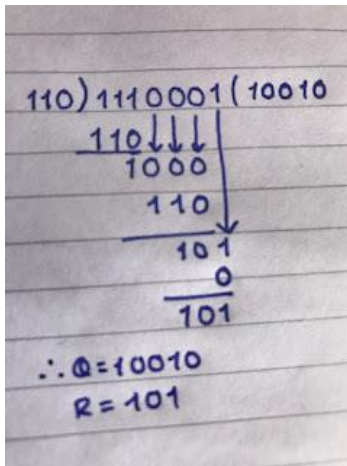 110)1110001(10010
110↓↓↓
1000
110
101
0
101
∴ Q=10010
R=101